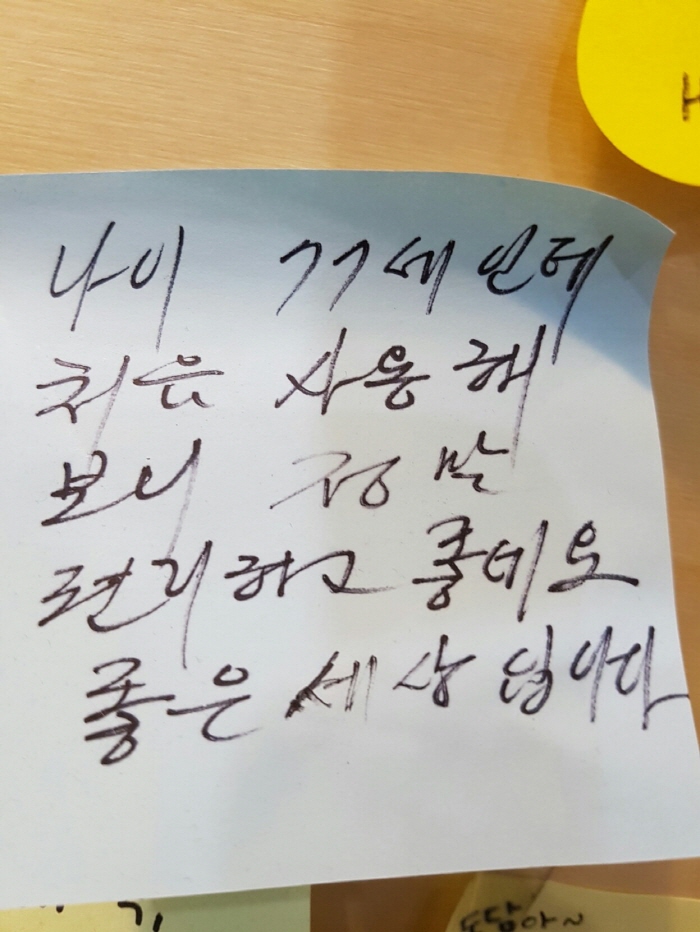 나이 77세인데
처음 사용해
보니 정말
편리하고 좋네요
좋은 세상 입니다
도담아~